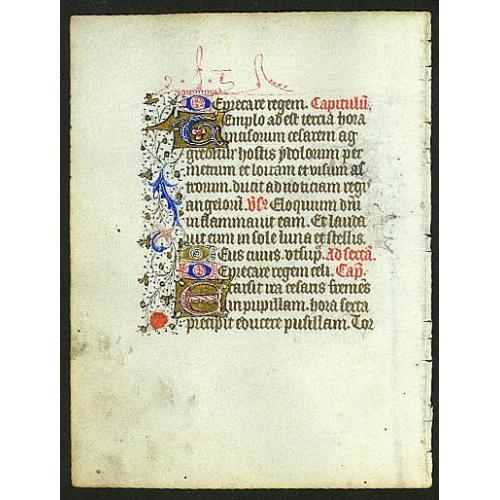 Deprecare regem. Capitulū.
Templo abest tercia hora
ad
greditur hostis ydolorum per
metrum et
trorum. ducit ad noticiam regū
angelorū. Vs. Eloquium dn̄i
inflammauit eam. Et lauda
uit eum in sole luna et stellis.
Deus cuius. vt sup̄. Ad sextā.
Deprecare regem celi. Cap.
ira cesaris
in pupillam. hora sexta
precipit educere pusillam. Tor